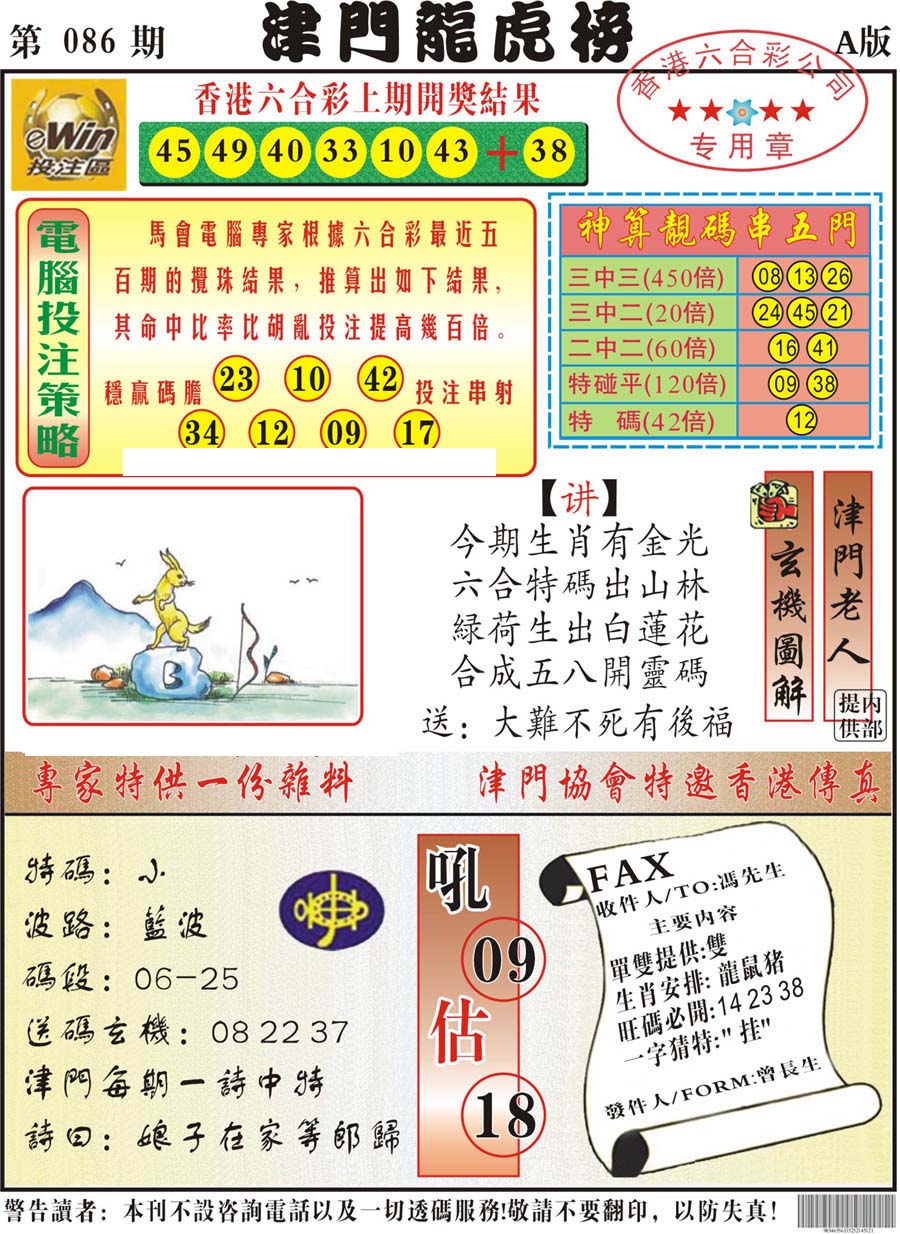 第 086 期
津門龍虎榜
A版
eWin
投注區
香港六合彩上期開獎結果
45 49 40 33 10 43 + 38
香港六合彩公司
★★★★
专用章
電腦投注策略
馬會電腦專家根據六合彩最近五
百期的攪珠結果，推算出如下結果，
其命中比率比胡亂投注提高幾百倍。
穩贏碼膽 23 10 42 投注串射
34 12 09 17
神算靚碼串五門
三中三(450倍) 08 13 26
三中二(20倍) 24 45 21
二中二(60倍) 16 41
特碰平(120倍) 09 38
特 碼(42倍) 12
B
【讲】
今期生肖有金光
六合特碼出山林
緑荷生出白蓮花
合成五八開靈碼
送：大難不死有後福
玄機圖解
津門老人
内部提供
專家特供一份雜料
津門協會特邀香港傳真
特碼：小
波路：藍波
碼段：06-25
送碼玄機：08 22 37
津門每期一詩中特
詩曰：娘子在家等郎歸
吼
09
估
18
FAX
收件人/TO:馮先生
主要内容
單雙提供:雙
生肖安排: 龍鼠猪
旺碼必開:14 23 38
一字猜特:"挂"
發件人/FORM:曾長生
警告讀者：本刊不設咨詢電話以及一切透碼服務!敬請不要翻印，以防失真!